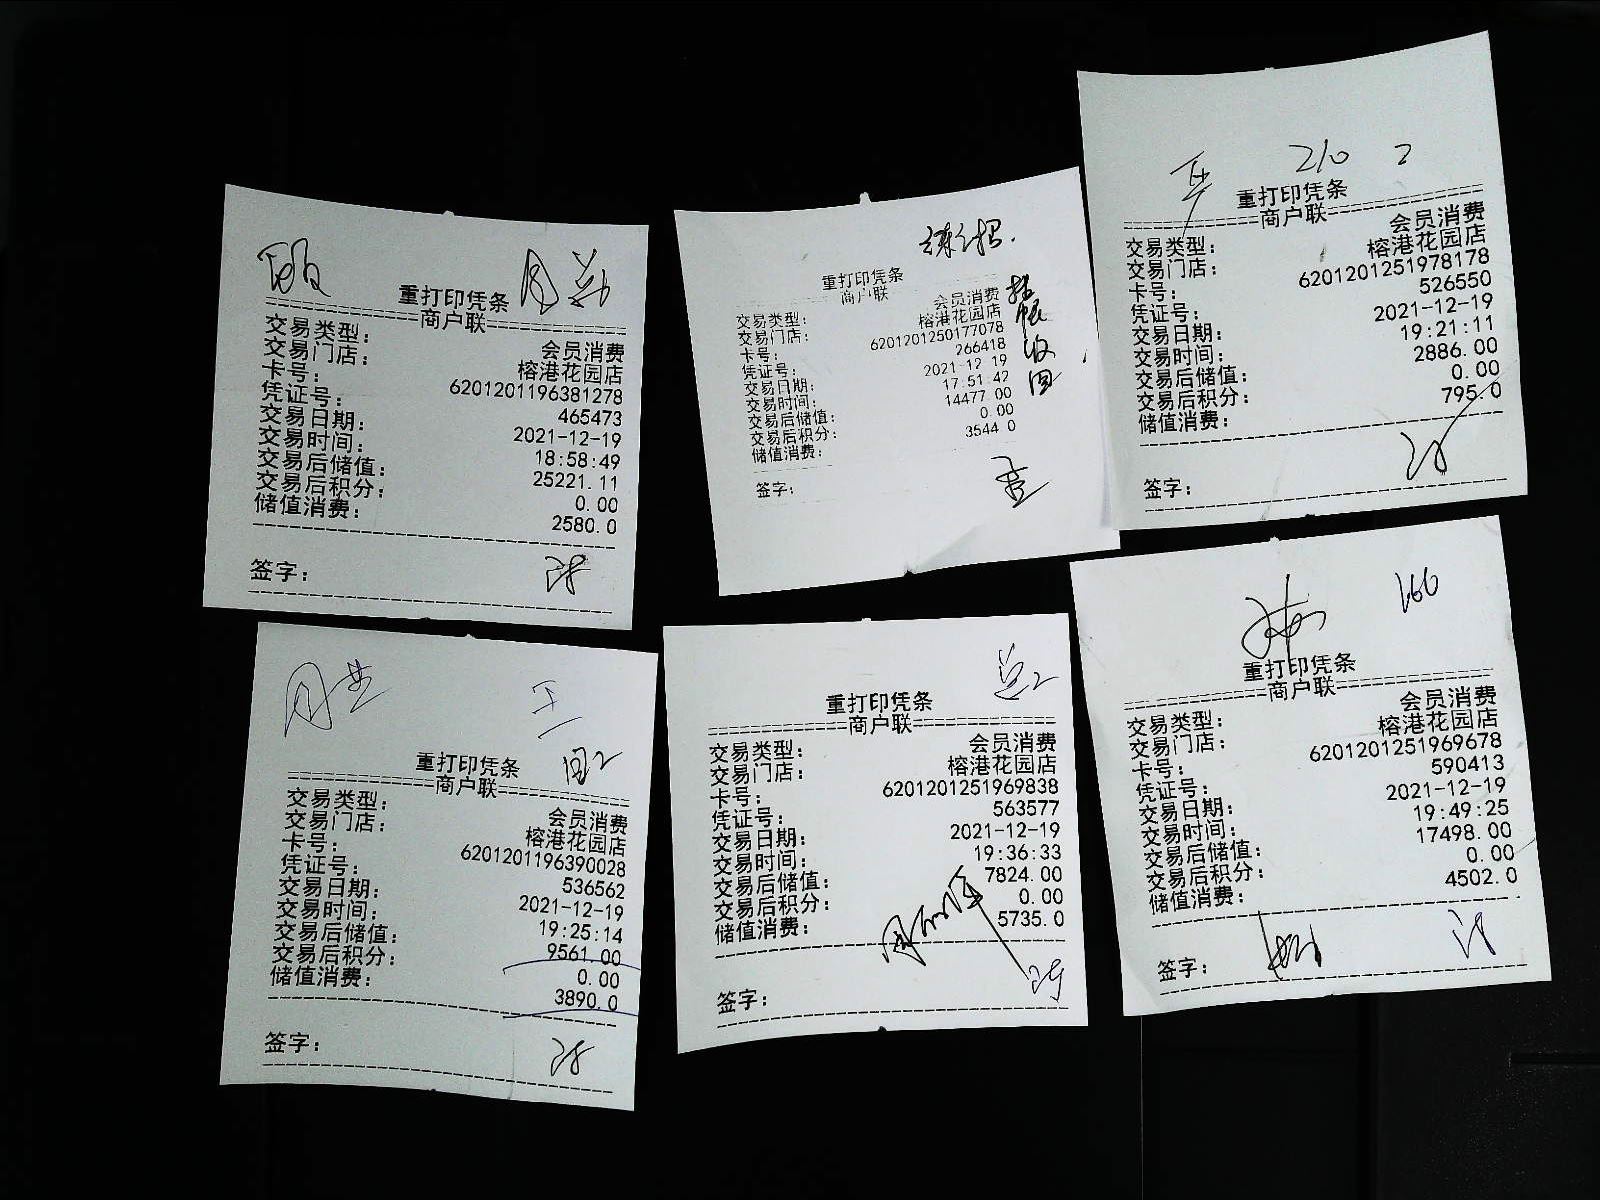 重打印凭条
商户联
交易类型： 会员消费
交易门店： 榕港花园店
卡号： 6201201196381278
凭证号： 465473
交易日期： 2021-12-19
交易时间： 18:58:49
交易后储值： 25221.11
交易后积分： 0.00
储值消费： 2580.0
签字：
重打印凭条
商户联
交易类型： 会员消费
交易门店： 榕港花园店
卡号： 6201201250177078
凭证号： 266418
交易日期： 2021-12 19
交易时间： 17:51:42
交易后储值： 14477 00
交易后积分： 0.00
储值消费： 3544 0
签字：
210 2
重打印凭条
商户联
交易类型： 会员消费
交易门店： 榕港花园店
卡号： 6201201251978178
凭证号： 526550
交易日期： 2021-12-19
交易时间： 19:21:11
交易后储值： 2886.00
交易后积分： 0.00
储值消费： 795.0
签字：
重打印凭条
商户联
交易类型： 会员消费
交易门店： 榕港花园店
卡号： 6201201196390028
凭证号： 536562
交易日期： 2021-12-19
交易时间： 19:25:14
交易后储值： 9561.00
交易后积分： 0.00
储值消费： 3890.0
签字：
重打印凭条
商户联
交易类型： 会员消费
交易门店： 榕港花园店
卡号： 6201201251969838
凭证号： 563577
交易日期： 2021-12-19
交易时间： 19:36:33
交易后储值： 7824.00
交易后积分： 0.00
储值消费： 5735.0
签字：
166
重打印凭条
商户联
交易类型： 会员消费
交易门店： 榕港花园店
卡号： 6201201251969678
凭证号： 590413
交易日期： 2021-12-19
交易时间： 19:49:25
交易后储值： 17498.00
交易后积分： 0.00
储值消费： 4502.0
签字：